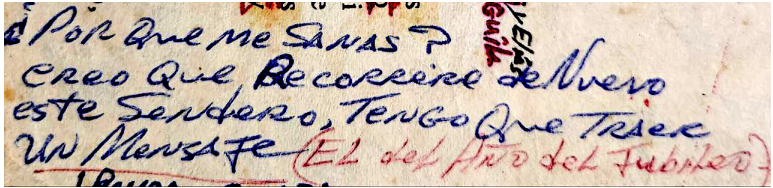 ¿Por Que me SANAS?
creo Que Recorrere de Nuevo
este Sendero, TENGO Que TRAER
UN MENSAJE (EL del AÑO del Jubileo)